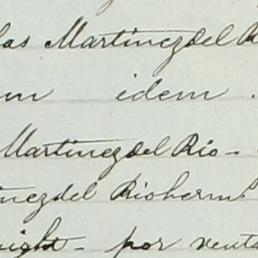 las Martinez del R
m idem .
Martinez del Rio -
inez del Rio herm
ight - por venta